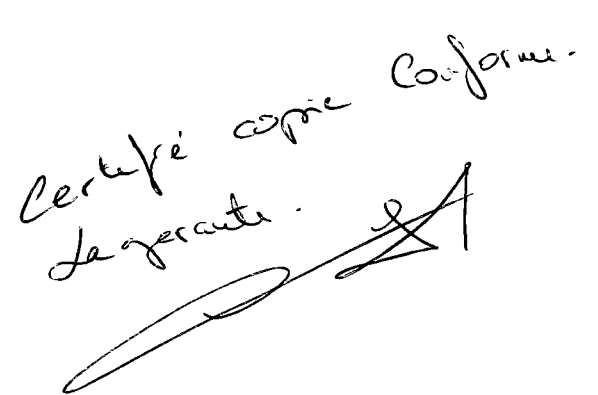 Certifié copie Conforme.
La gerante.